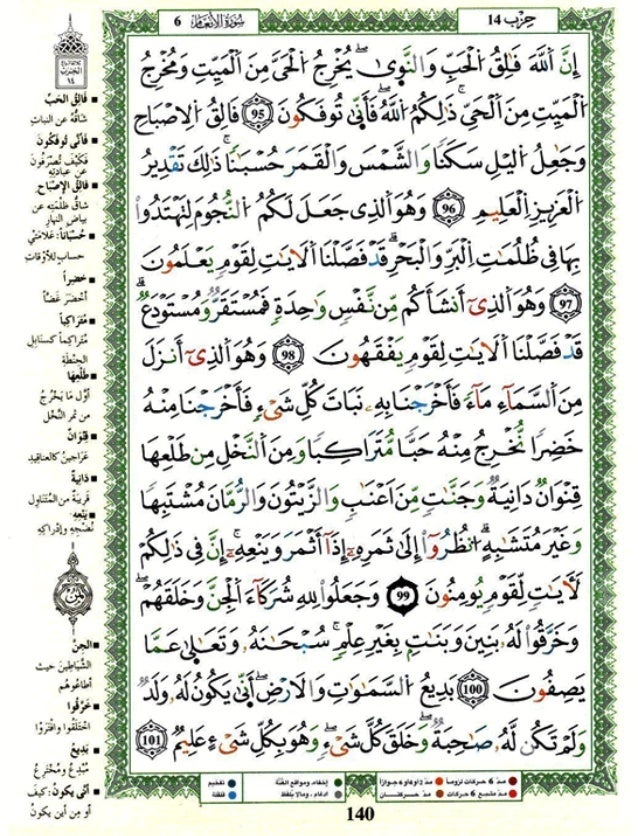 حِزْب 14
سُورَةُ الأَنْعَام 6
إِنَّ اَللَّهَ فَٰلِقُ اُلْحَبِّ وَالنَّوَىٰۖ يُخْرِجُ اُلْحَيَّ مِنَ اَلْمَيِّتِ وَمُخْرِجُ
اُلْمَيِّتِ مِنَ اَلْحَيِّۚ ذَٰلِكُمُ اُللَّهُۖ فَأَنّ۪ىٰ تُوفَكُونَ 95 فَالِقُ اُلِاصْبَاحِ
وَجَٰعِلُ اُليْلِ سَكَناٗ وَالشَّمْسَ وَالْقَمَرَ حُسْبَٰناٗۚ ذَٰلِكَ تَقْدِيرُ
اُلْعَزِيزِ اِلْعَلِيمِ 96 وَهُوَ اَلذِى جَعَلَ لَكُمُ اُلنُّجُومَ لِتَهْتَدُوا
بِهَا فِى ظُلُمَٰتِ اِلْبَرِّ وَالْبَحْرِۗ قَدْ فَصَّلْنَا اَلَايَٰتِ لِقَوْمٍ يَعْلَمُونَ
97 وَهُوَ اَلذِىٓ أَنشَأَكُم مِّن نَّفْسٍ وَٰحِدَةٍ فَمُسْتَقَرٌّ وَمُسْتَوْدَعٌۗ
قَدْ فَصَّلْنَا اَلَايَٰتِ لِقَوْمٍ يَفْقَهُونَ 98 وَهُوَ اَلذِىٓ أَنزَلَ
مِنَ اَلسَّمَآءِ مَآءً فَأَخْرَجْنَا بِهِۦ نَبَاتَ كُلِّ شَىْءٍ فَأَخْرَجْنَا مِنْهُ
خَضِراٗ نُّخْرِجُ مِنْهُ حَبّاٗ مُّتَرَاكِباٗ وَمِنَ اَلنَّخْلِ مِن طَلْعِهَا
قِنْوَانٌ دَانِيَةٌ وَجَنَّٰتٍ مِّنَ اَعْنَٰبٍ وَالزَّيْتُونَ وَالرُّمَّانَ مُشْتَبِهاٗ
وَغَيْرَ مُتَشَٰبِهٍۗ اُنظُرُوٓا إِلَىٰ ثَمَرِهِۦٓ إِذَآ أَثْمَرَ وَيَنْعِهِۦٓۚ إِنَّ فِى ذَٰلِكُمْ
لَأٓيَٰتٍ لِّقَوْمٍ يُومِنُونَ 99 وَجَعَلُوا لِلهِ شُرَكَآءَ اَلْجِنَّ وَخَلَقَهُمْۖ
وَخَرَّقُوا لَهُۥ بَنِينَ وَبَنَٰتٍ بِغَيْرِ عِلْمٍۚ سُبْحَٰنَهُۥ وَتَعَٰلَىٰ عَمَّا
يَصِفُونَ 100 بَدِيعُ اُلسَّمَٰوَٰتِ وَالَارْضِۖ أَنّ۪ىٰ يَكُونُ لَهُۥ وَلَدٌ
وَلَمْ تَكُن لَّهُۥ صَٰحِبَةٌۖ وَخَلَقَ كُلَّ شَىْءٍۖ وَهُوَ بِكُلِّ شَىْءٍ عَلِيمٌ 101
▪ فَالِقُ الحَبّ
شَاقُّهُ عن النباتِ
▪ فأنَّى تُوفَكُون
فكيْفَ تُصْرَفُونَ
عن عبادتِهِ
▪ فالِقُ الإصْباح
شَاقُّ ظُلْمَتِهِ عن
بياضِ النهارِ
▪ حُسْبَاناً: علامَتَيْ
حسابٍ للأوقاتِ
▪ خضِراً
أخضَرَ غَضًّا
▪ مُتَرَاكِباً
مُتراكِماً كسنابِلِ
الحِنْطَةِ
▪ طَلْعِها
أوَّلِ ما يَخْرُجُ
من ثمرِ النَّخْلِ
▪ قِنْوَانٌ
عَرَاجِينُ كالعناقِيدِ
▪ دَانِيَةٌ
قَرِيبَةٌ من المُتَناوِلِ
▪ يَنْعِهِ
نُضْجِهِ وإدْراكِهِ
▪ الجِنّ
الشَّيَاطِينَ حيث
أطاعُوهُم
▪ خَرَّقُوا
اخْتَلَقُوا وافْتَرَوْا
▪ بَدِيعُ
مُبْدِعُ ومُخْتَرِعُ
▪ أنَّى يكُونُ: كيف
أو من أين يكونُ
مدّ 6 حركات لزوماً
مدّ 2 أو 4 أو 6 جوازاً
إخفاء، ومواقع الغنّة
تفخيم
مدّ مشبع 6 حركات
مدّ حركتان
إدغام، وما لا يلفظ
قلقلة
140